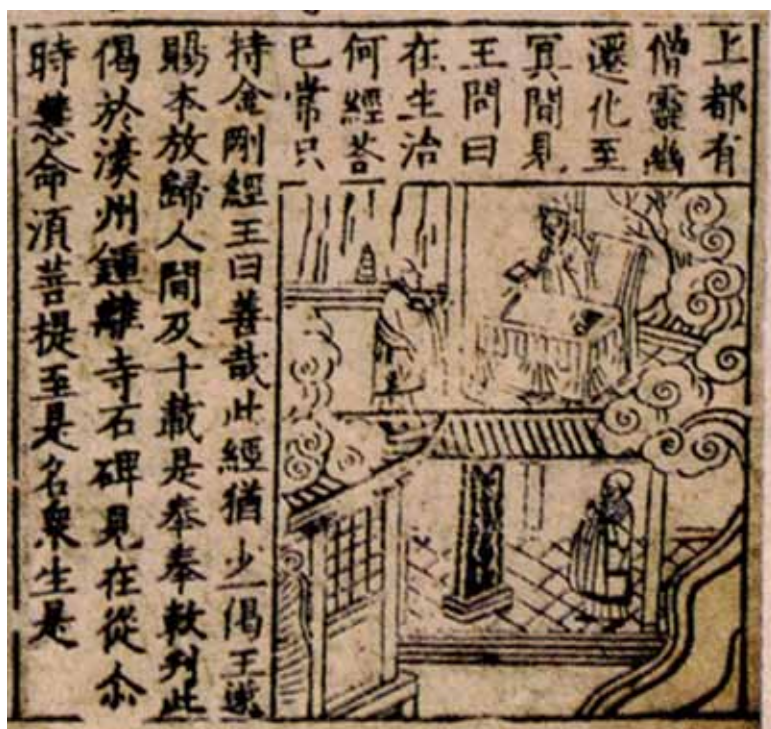 上都有
僧靈幽
遷化至
冥間見
王問曰
在生治
何經荅
巳常只
持金剛經王曰善哉此經猶少一偈王遂
賜本放歸人間及十載是奉奉敕刋此
偈於濠州鍾離寺石碑見在從尒
時慧命湏菩提至是名衆生是